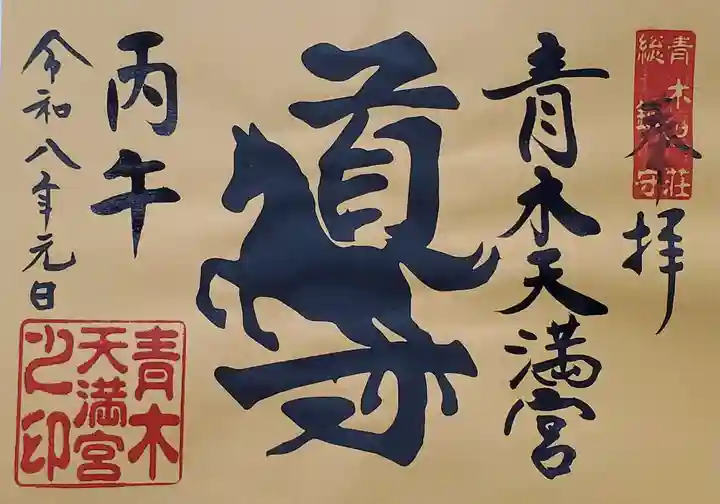 青木の荘
総鎮守
奉拝
青木天満宮
導
丙午
令和八年元日
青木
天満宮
之印